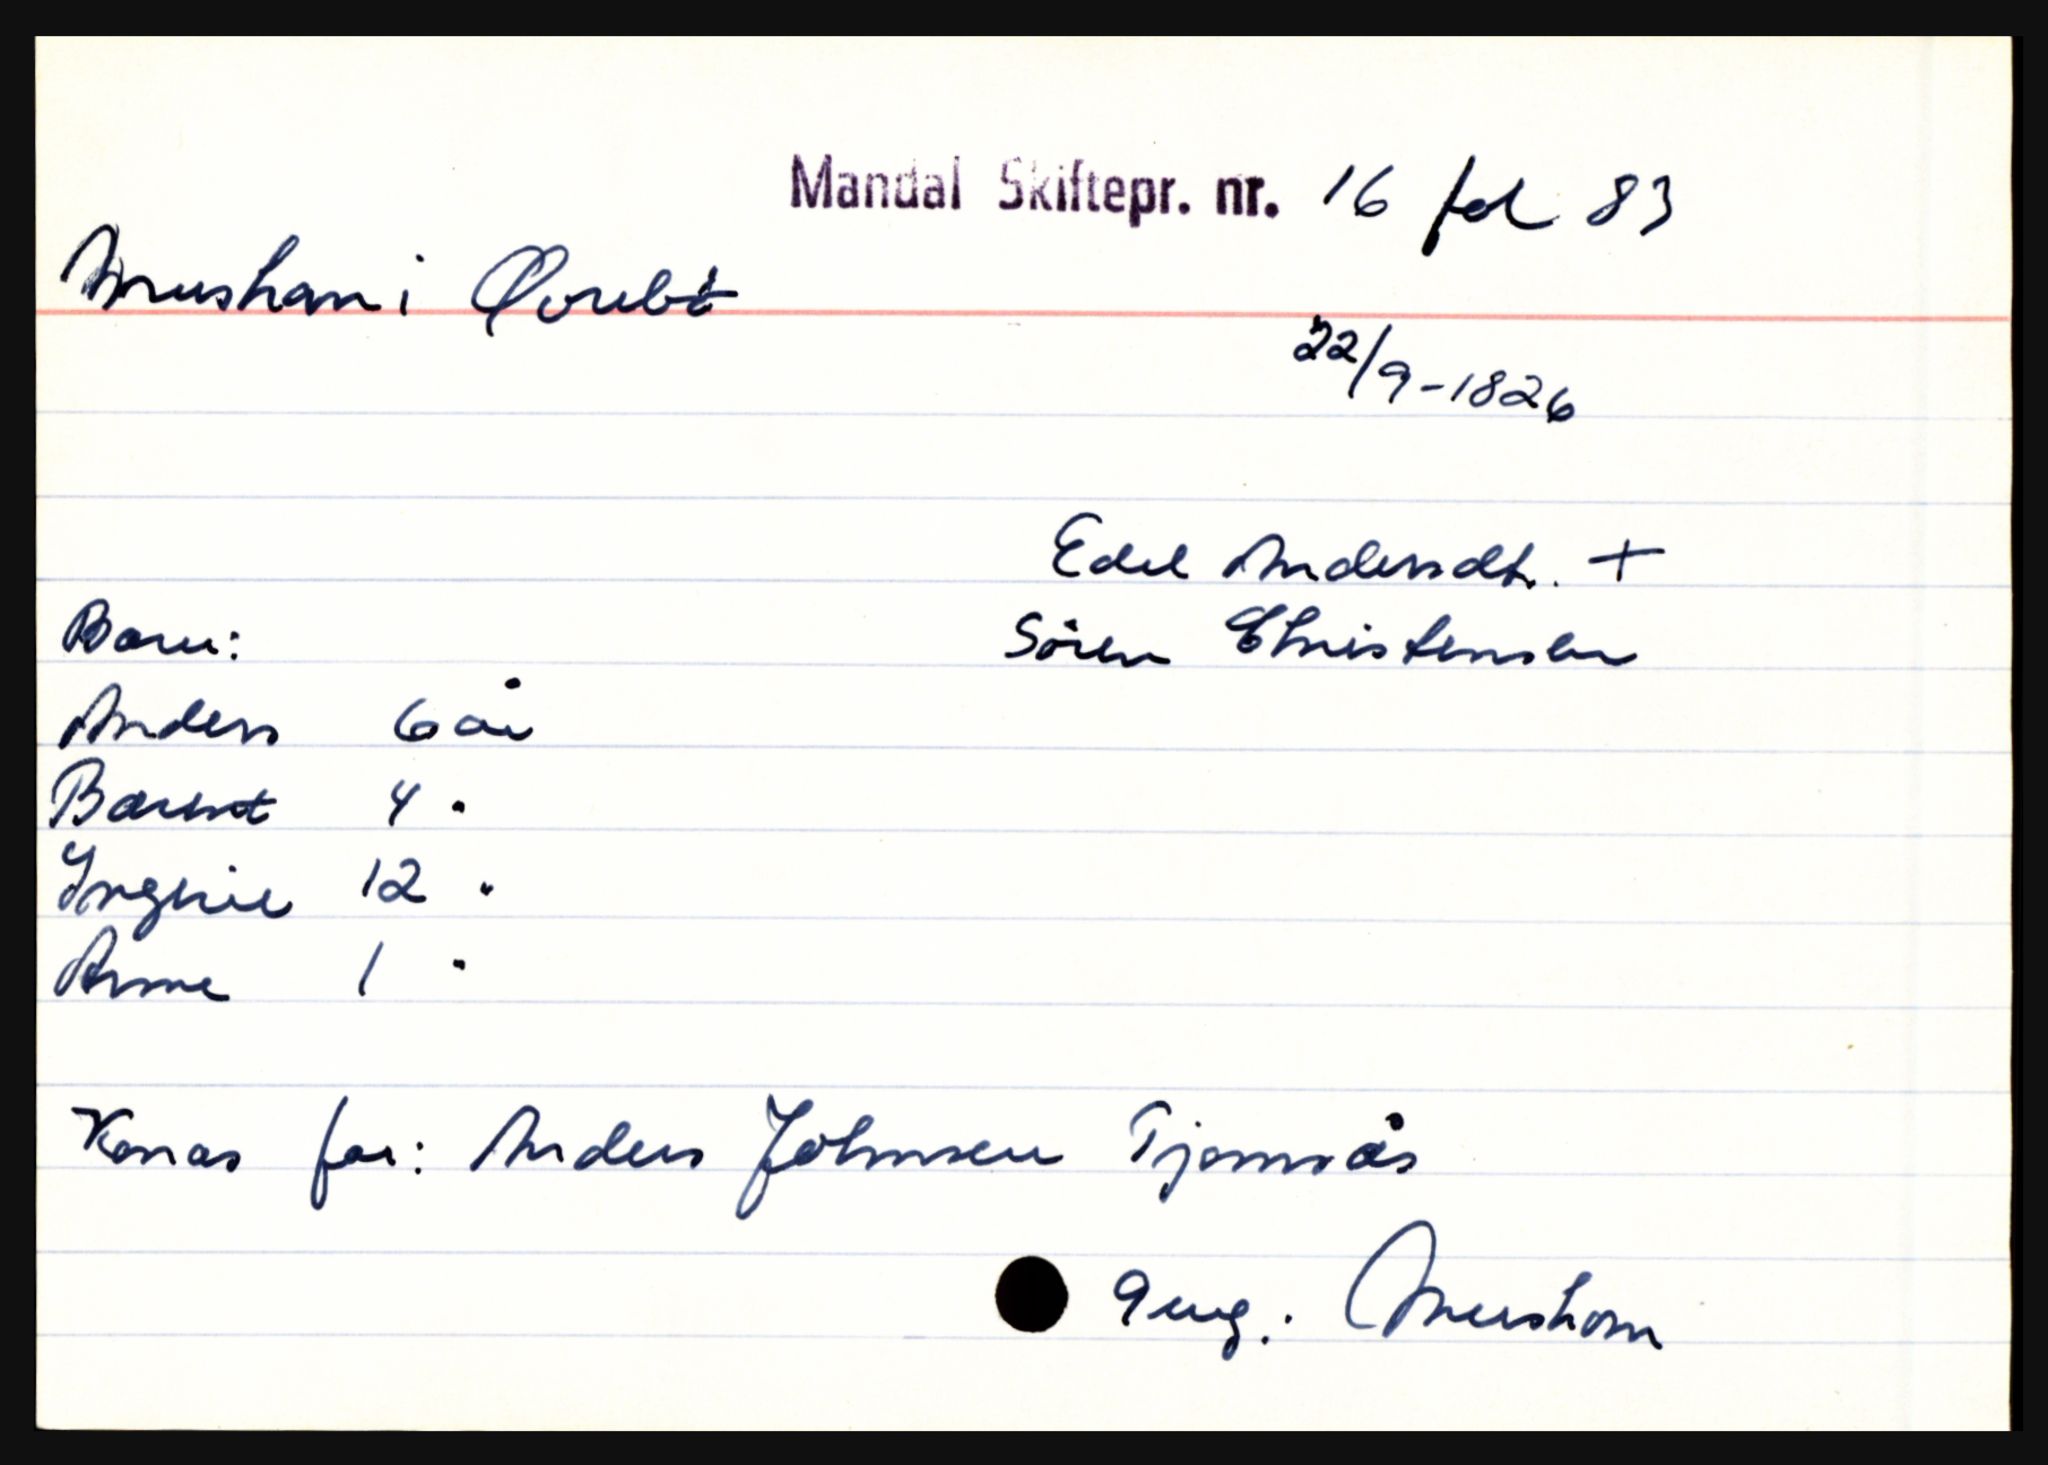 Mandal Skiftepr. nr. 16 fol 83
Mushom i Øvrebø
22/9-1826
Edel Andersdt. +
Barn: Sören Christensen
Anders 6 år
Barent 4 "
Ingerie 12 "
Anne 1 "
Konas far: Anders Johnsen Tjomsås
9 ung.: Mushom